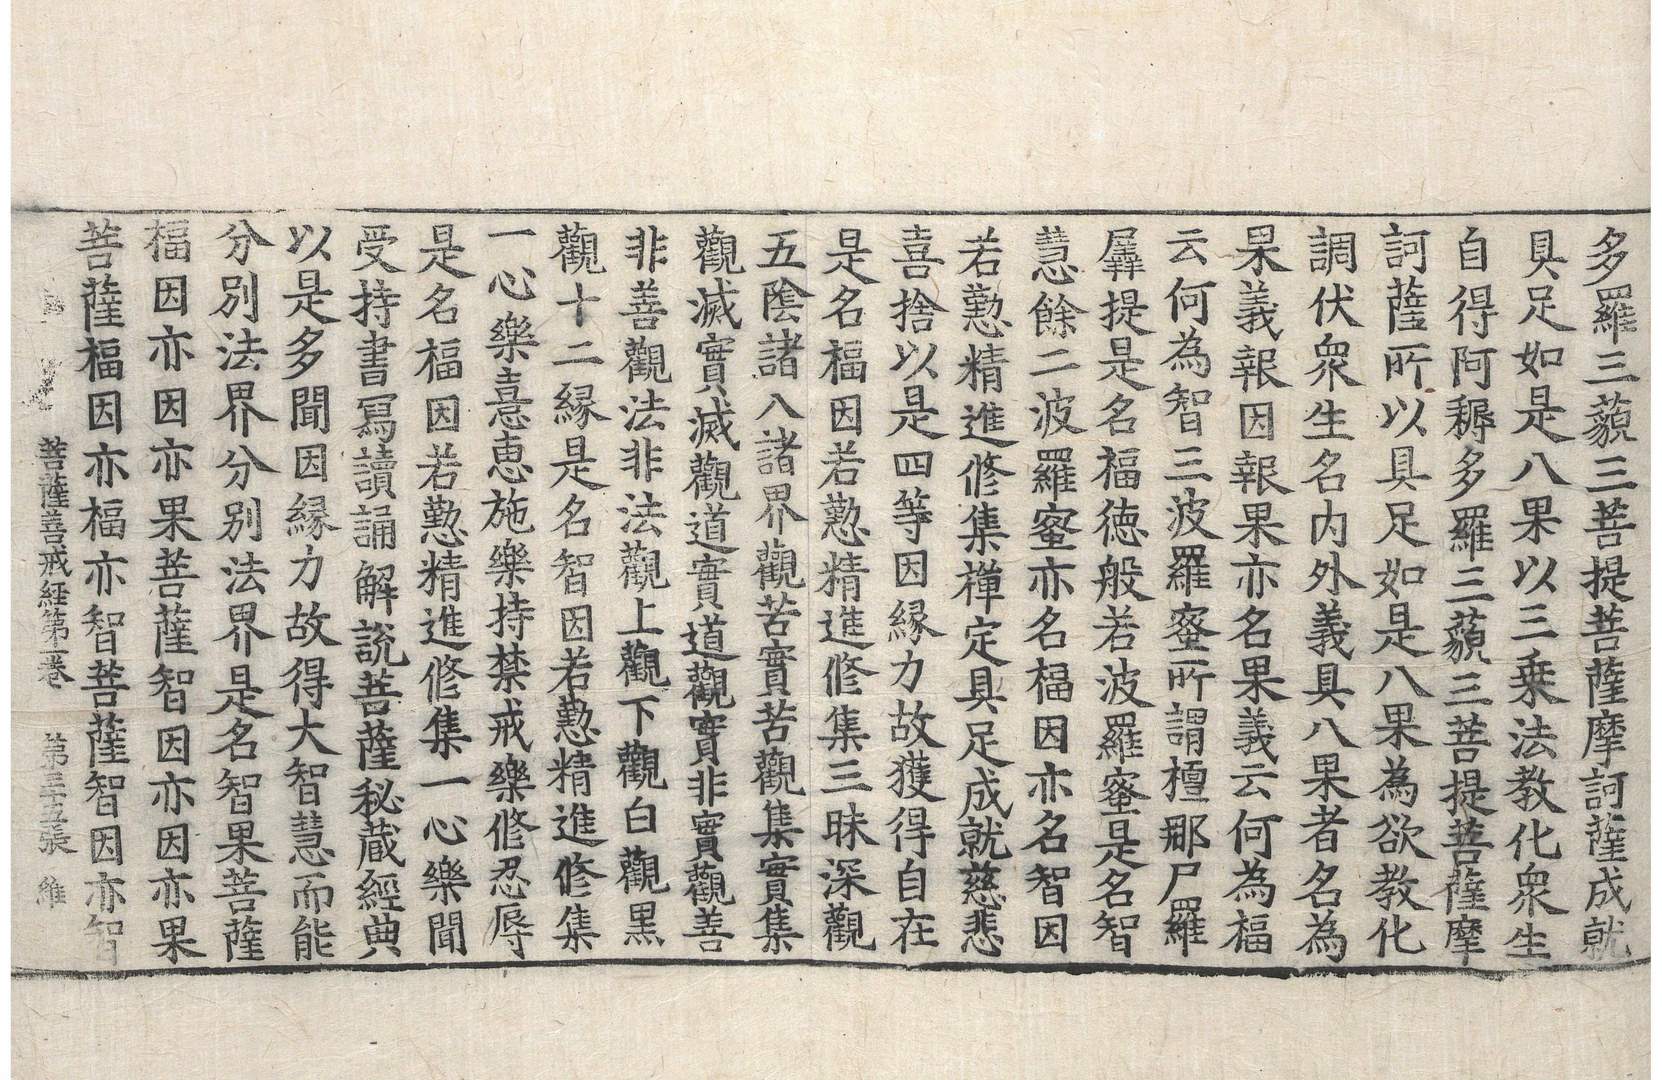 多羅三藐三菩提菩薩摩訶薩成就
具足如是八果以三乗法教化衆生
自得阿耨多羅三藐三菩提菩薩摩
訶薩所以具足如是八果為欲教化
調伏衆生名内外義具八果者名為
果義報因報果亦名果義云何為福
云何為智三波羅蜜所謂檀那尸羅
羼提是名福徳般若波羅蜜是名智
慧餘二波羅蜜亦名福因亦名智因
若懃精進修集禅定具足成就慈悲
喜捨以是四等因縁力故獲得自在
是名福因若懃精進修集三昧深觀
五陰諸入諸界觀苦實苦觀集實集
觀滅實滅觀道實道觀實非實觀善
非善觀法非法觀上觀下觀白觀黒
觀十二縁是名智因若懃精進修集
一心樂意恵施樂持禁戒樂修忍辱
是名福因若懃精進修集一心樂聞
受持書寫讀誦解説菩薩秘蔵經典
以是多聞因縁力故得大智慧而能
分別法界分別法界是名智果菩薩
福因亦因亦果菩薩智因亦因亦果
菩薩福因亦福亦智菩薩智因亦智
菩薩善戒經第一巻 第三十五張 維